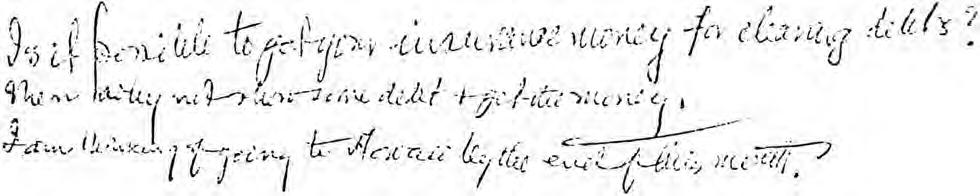 Is it possible to get your insurance money for clearing debts?
Then why not show some debt + get the money.
I am thinking of going to Hawaii by the end of this month.